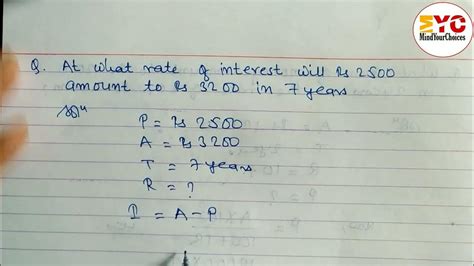 EYC
MindYourChoices
Q. At what rate of interest will Rs 2500
amount to Rs 3200 in 7 years
Solⁿ
P = Rs 2500
A = Rs 3200
T = 7 years
R = ?
I = A - P